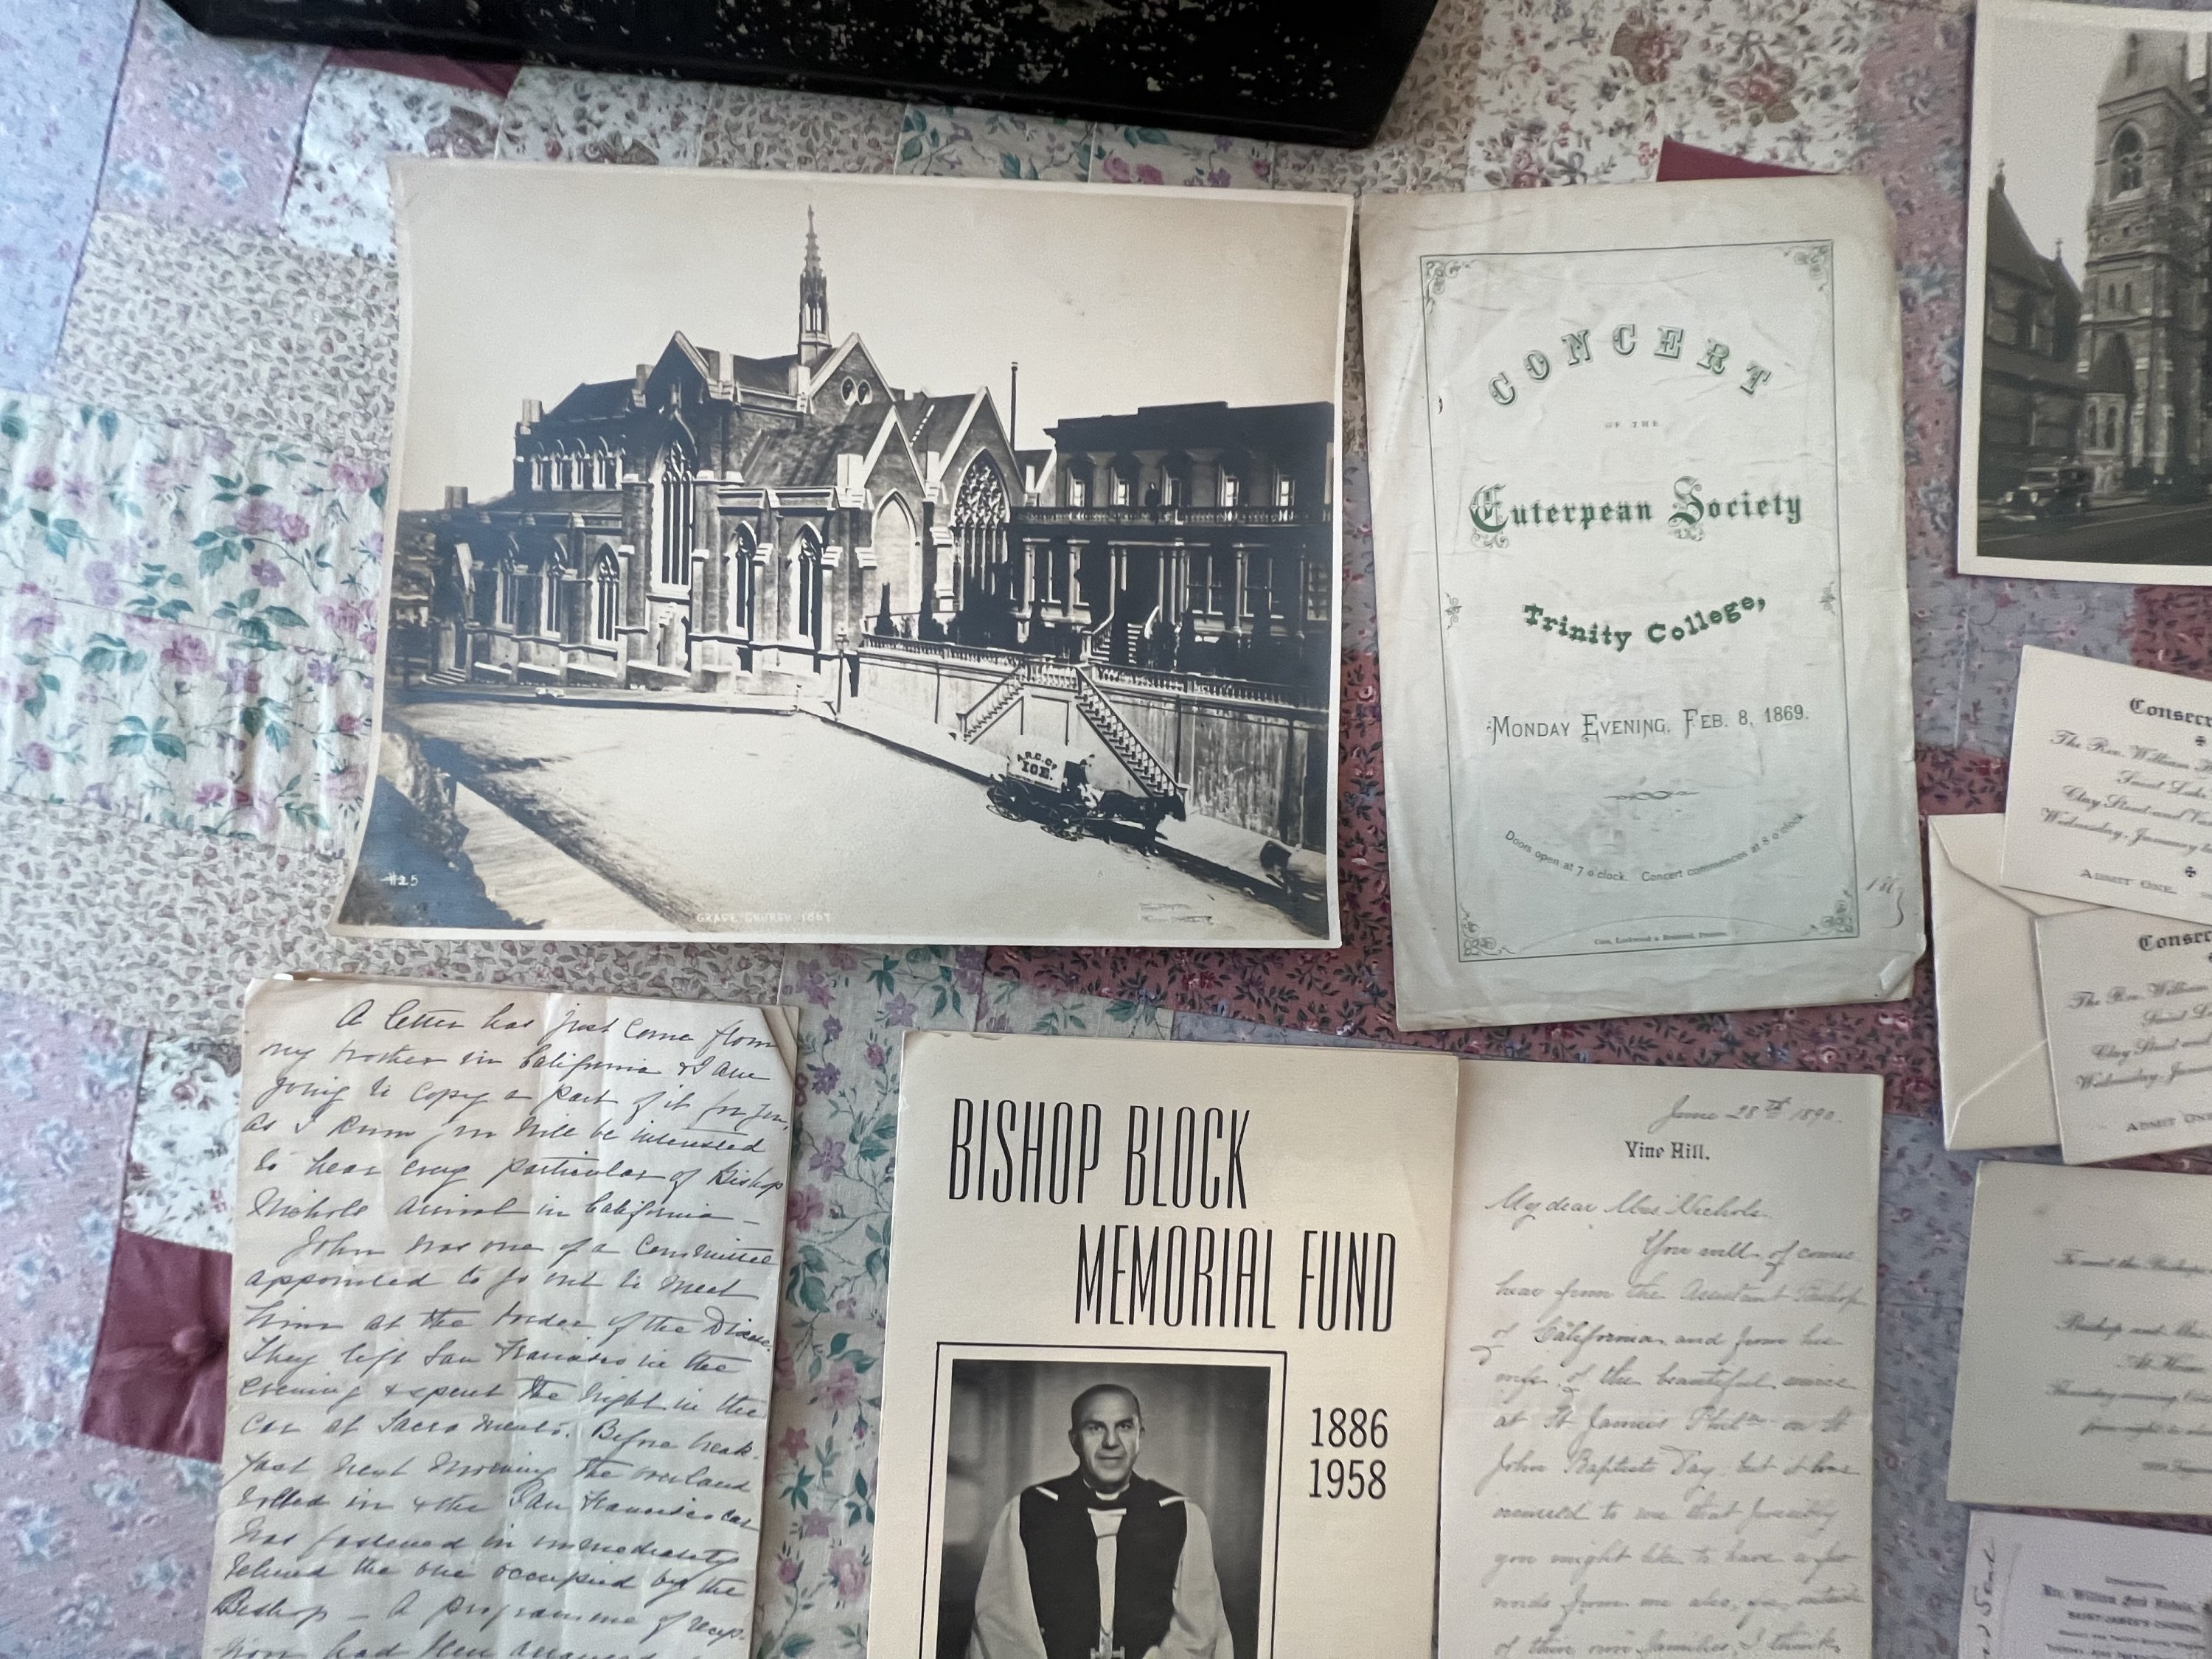 ICE.
#25
GRACE CHURCH, 1867
CONCERT
OF THE
Euterpean Society
Trinity College,
MONDAY EVENING, FEB. 8, 1869.
Doors open at 7 o'clock. Concert commences at 8 o'clock.
Case, Lockwood & Brainard, Printers.
Consecr
The Rev. William
Saint Luke
Clay Street and Van
Wednesday, January
ADMIT ONE.
Consec
The Rev. William
Saint Luke
Clay Street and
Wednesday, Janu
ADMIT ONE
A letter has just come from
my brother in California & I am
going to copy a part of it for you,
as I know you will be interested
to hear every particular of Bishop
Nichols arrival in California –
John was one of a Committee
appointed to go out to meet
him at the border of the Diocese.
They left San Francisco in the
evening & spent the night in the
car at Sacramento. Before break-
fast next morning the overland
rolled in & the San Francisco car
was fastened in immediately
behind the one occupied by the
Bishop – A programme of recep-
tion had been arranged
BISHOP BLOCK
MEMORIAL FUND
1886
1958
June 28th 1890.
Vine Hill.
My dear Mrs Nichols.
You will of course
hear from the Assistant Bishop
of California and from his
wife of the beautiful service
at St James Phila on St
John Baptists Day, but it has
occurred to me that possibly
you might like to have a few
words from me also, for, outside
of their own families, I think
To meet the Bishop
Bishop and Mrs
At Home
Thursday evening
Rev. William Ford Nichols
SAINT JAMES'S CHURCH